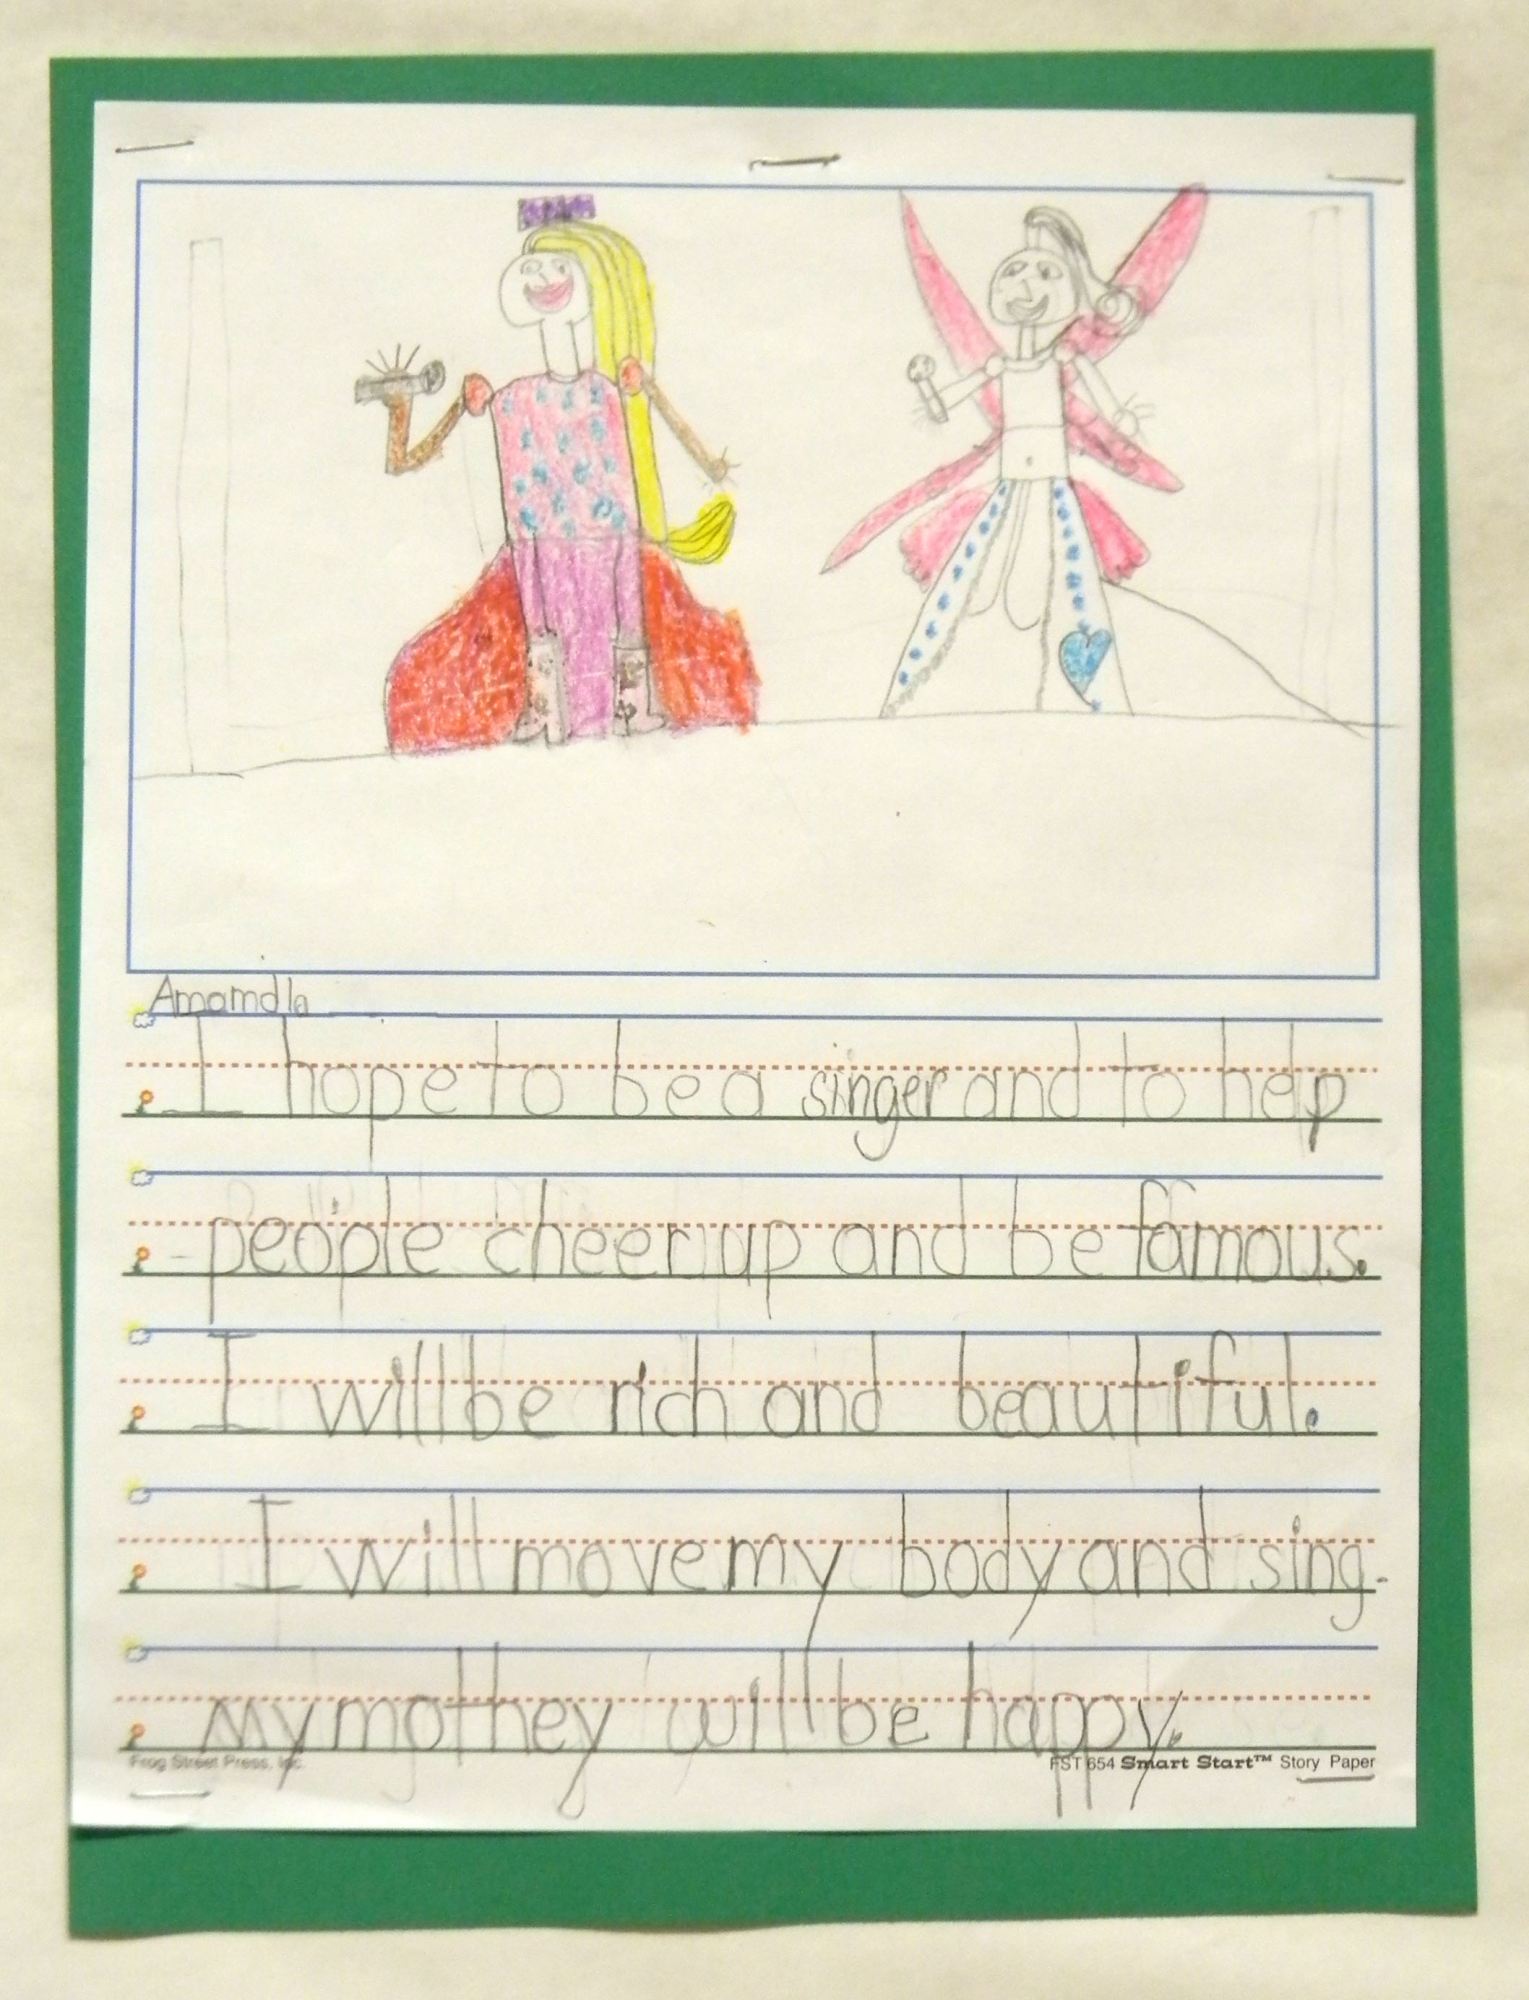 Amamdla
I hope to be a singer and to help
people cheer up and be famous.
I will be rich and beautiful.
I will move my body and sing.
My mothey will be happy.
Frog Street Press, Inc. FST 654 Smart Start™ Story Paper